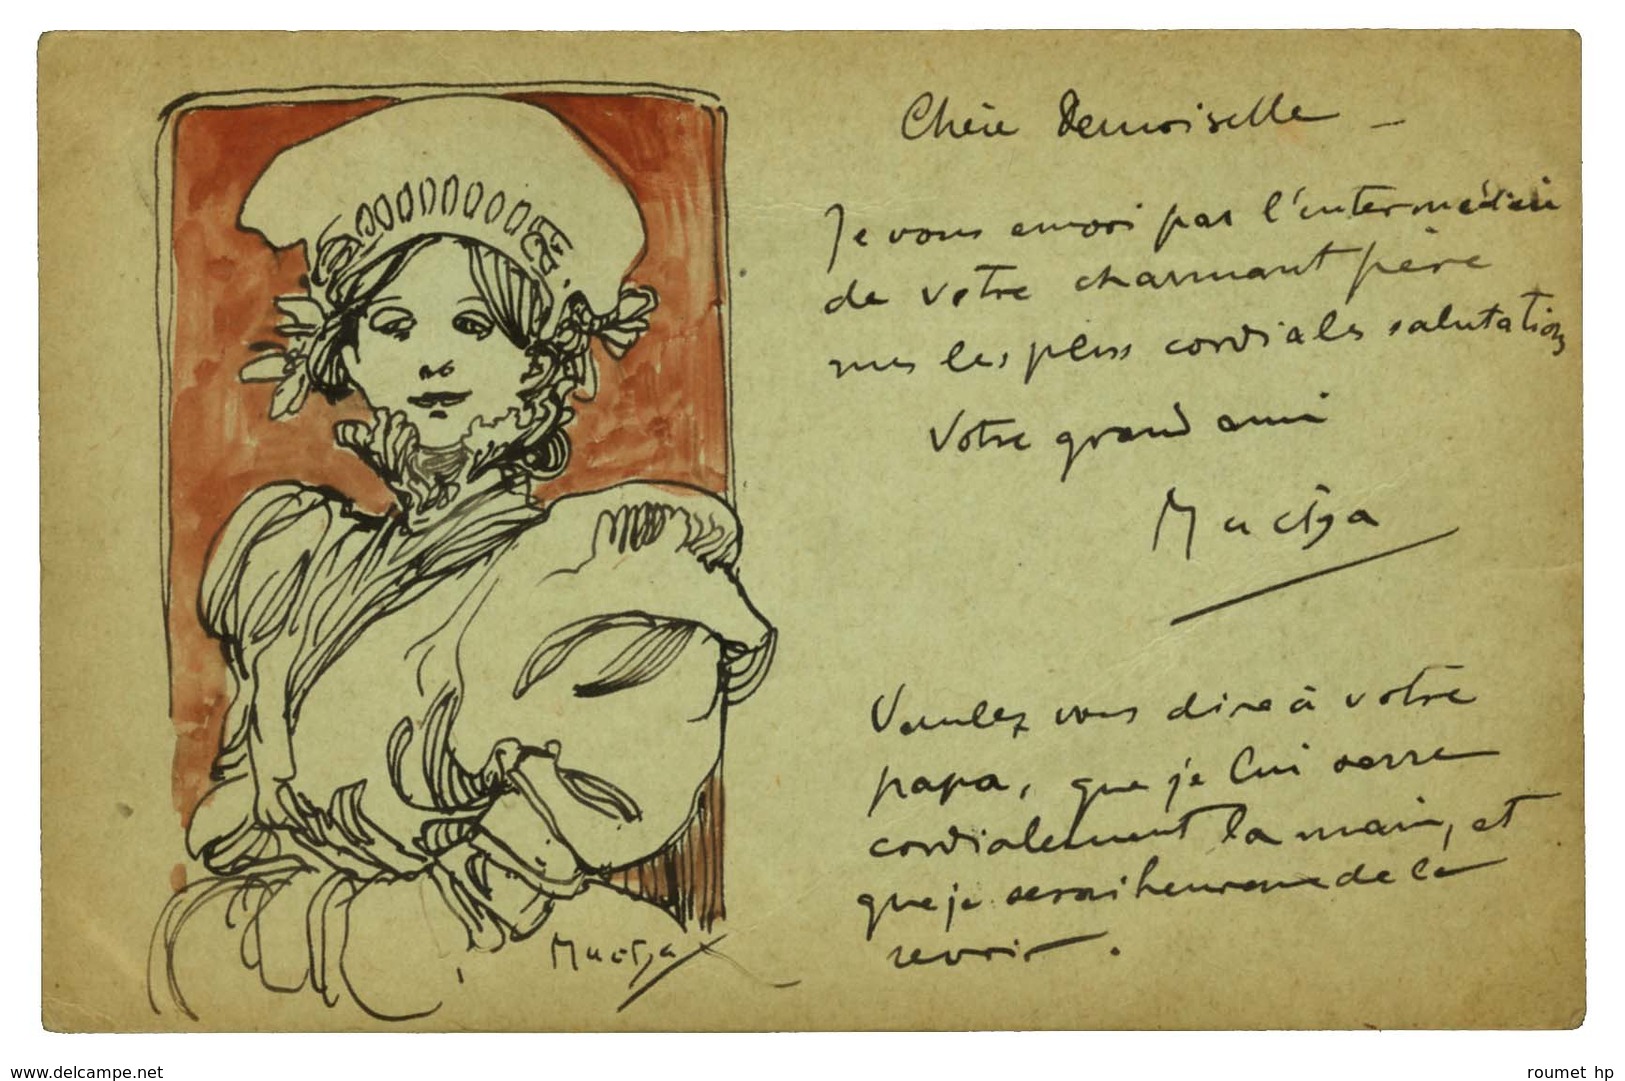 Chère Demoiselle –
Je vous envoi par l'intermédiair
de votre charmant père
mes les plus cordiales salutations
Votre grand ami
Mucha
Veuillez vous dire à votre
papa, que je lui serre
cordialement la main, et
que je serai heureux de le
revoir.
Mucha
www.delcampe.net
roumet hp